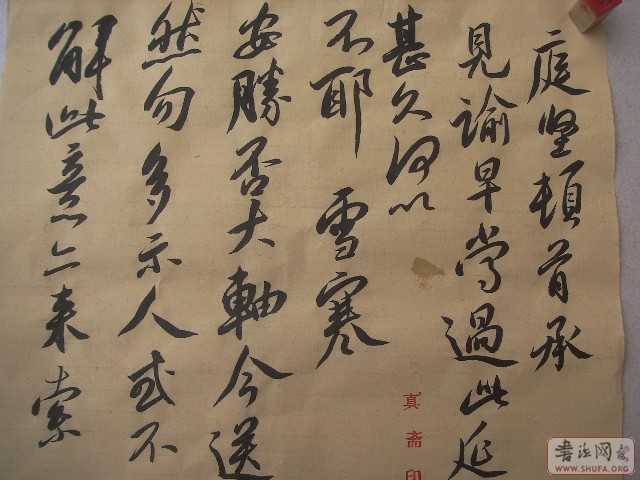 庭坚頓首承
見諭早嘗過此延
甚久何以
不耶 雪寒
安勝否大軸今送
然勿多示人或不
解此意亦来索
真斋印
書法网
WWW.SHUFA.ORG